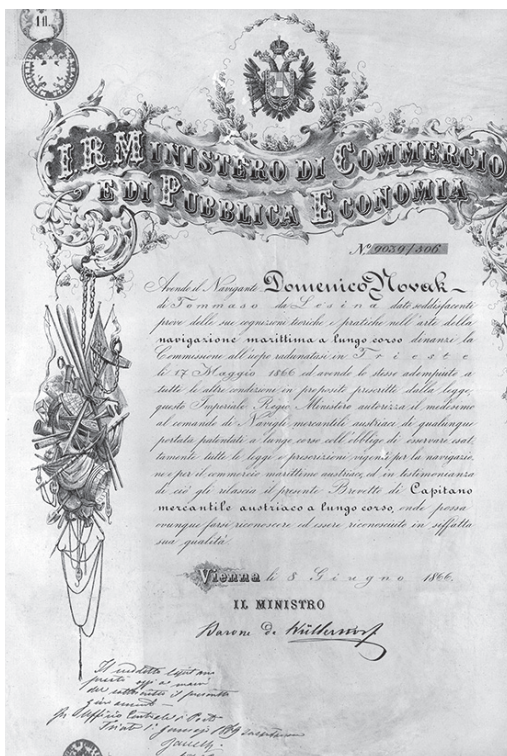 10.
I R MINISTERO DI COMMERCIO
E DI PUBBLICA ECONOMIA
No. 9039/306
Avendo il Navigante Domenico Novak
di Tommaso da Lesina dato soddisfacenti
prove delle sue cognizioni teoriche e pratiche nell'arte della
navigazione marittima a lungo corso dinanzi la
Commissione all'uopo radunatasi in Trieste
li 17 Maggio 1866 ed avendo lo stesso adempiuto a
tutte le altre condizioni in proposito prescritte dalla legge,
questo Imperiale Regio Ministero autorizza il medesimo
al comando di Navigli mercantili austriaci di qualunque
portata patentati a lungo corso coll'obbligo di osservare esat-
tamente tutte le leggi e prescrizioni vigenti per la navigazio-
ne e per il commercio marittimo austriaco, ed in testimonianza
di ciò gli rilascia il presente Brevetto di Capitano
mercantile austriaco a lungo corso, onde possa
ovunque farsi riconoscere ed essere riconosciuto in siffatta
sua qualità.
Vienna li 8 Giugno 1866.
IL MINISTRO
Barone de Wüllerstorf
Il suddetto
oggi a mani
del sottoscritto il presente
giuramento
Trieste 1869